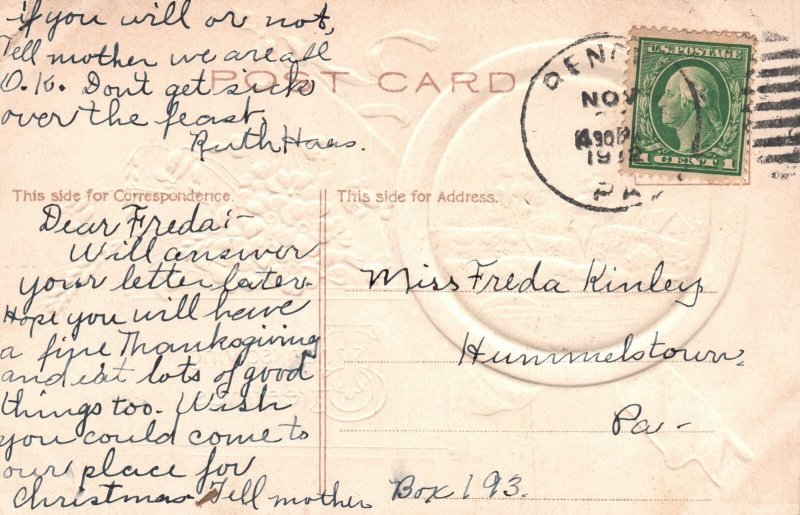 if you will or not,
Tell mother we are all
O.K. Dont get sick
over the feast.
Ruth Haas.
POST CARD
NOV
430 PM
1912
PA
U.S. POSTAGE
1 CENT 1
This side for Correspondence.
This side for Address.
Dear Freda:-
Will answer
your letter later.
Hope you will have
a fine Thanksgiving
and eat lots of good
things too. Wish
you could come to
our place for
Christmas. Tell mother
Miss Freda Kinley
Hummelstown,
Pa-
Box 193.